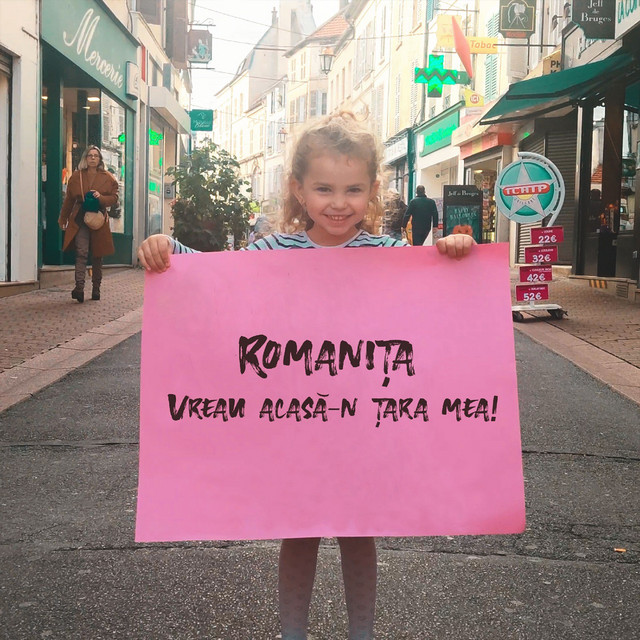 Mercerie
Jeff
de Bruges
Tabac
Jeff de Bruges
TCHIP
22€
32€
42€
52€
ROMANIȚA
VREAU ACASĂ-N ȚARA MEA!